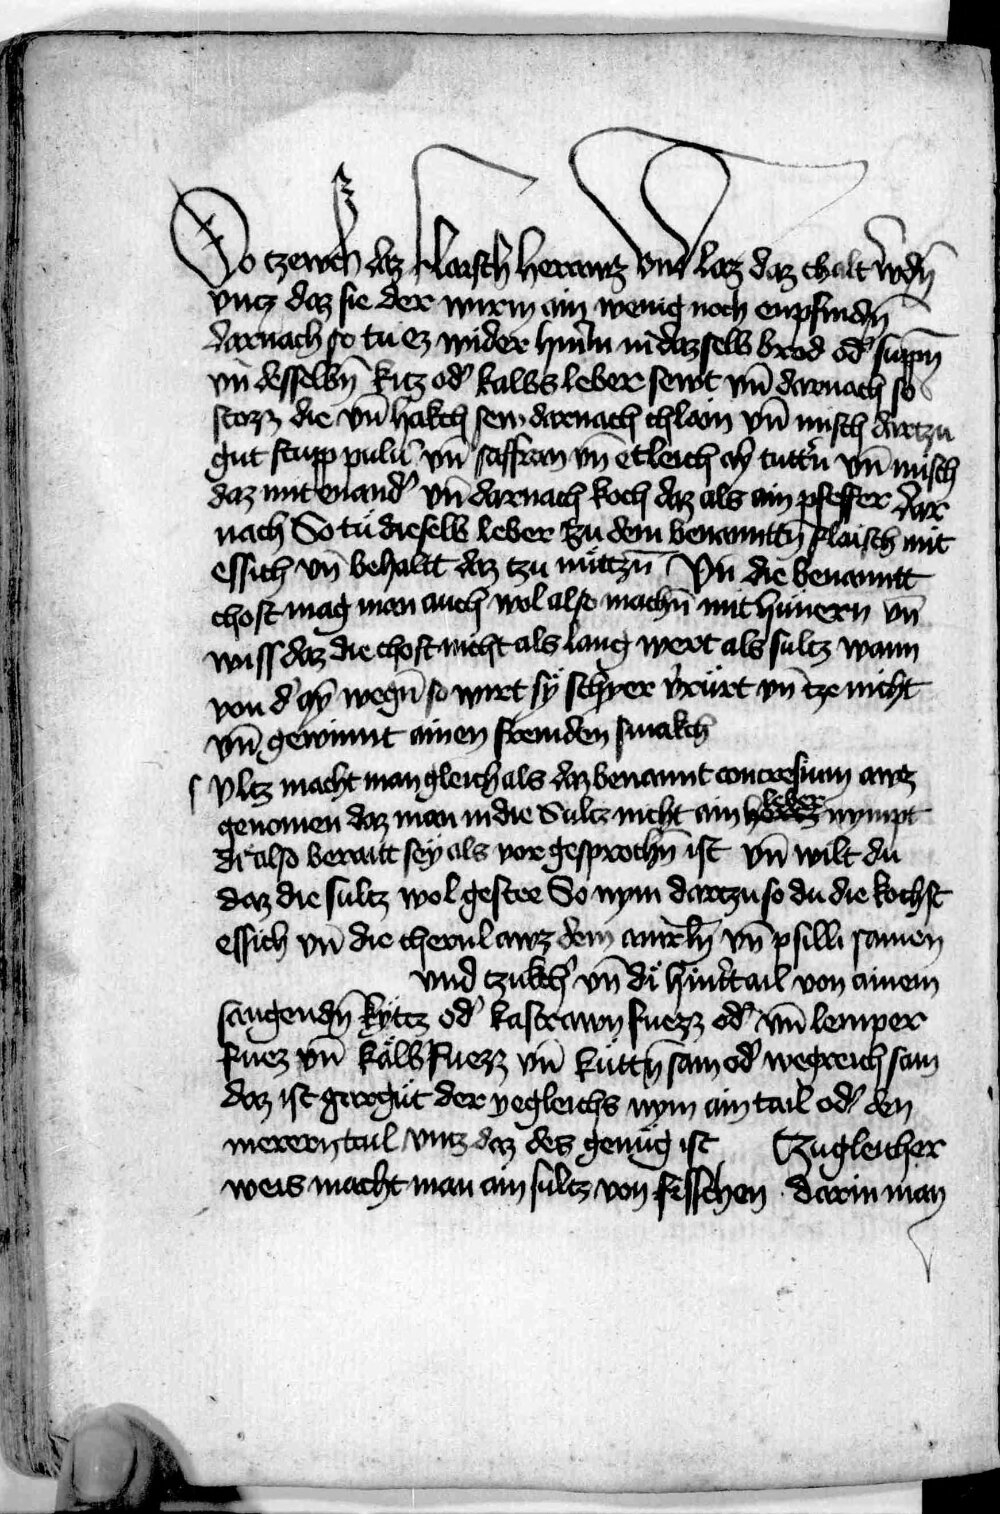 So tzewch daz flaisch herawz Und laz daz chalt w̄dn̄
vncz daz sie der wirm ain wenig noch enpfindn̄
darnach so tu ez wider hin̄ in dazselb brod od' supp̄m
vn̄ desselbn̄ kitz od' kalbs leber sewt vn̄ darnach so
stozz die vn̄ hakch sew darnach chlain vn̄ misch dartzu
gut stupp pulu' vn̄ saffran vn̄ etleich ay tutt'n vn̄ misch
daz mit enand' vn̄ darnach koch daz als ain pfeffer dar
nach So tu dieselb leber zu dem benanttn̄ flaisch mit
essich vn̄ behaltt daz tzu nüttzn̄ Vn̄ die benantt
chost mag man auch wol also machn̄ mit hünern vn̄
wiss daz die chost nicht als lang wert als sultz wann
von d' ay wegn̄ so wirt sy schyer v'rürt vn̄ tze nicht
vn̄ gewinnt ainen fremden smakch
Sultz macht man gleich als daz benannt concresium awz
genomen daz man in die Sultz nicht ain leber nympt
di also beraitt sey als vor gesprochn̄ ist vn̄ wilt du
daz die sultz wol gestee So nym dartzu so du die kochst
essich vn̄ die chernl awz dem vn̄ psilli samen
und tzukch' vn̄ di hint'tail von ainem
saugendn̄ kytz od' kastrawn fuezz od' vn̄ lemper
fuez vn̄ kälb fuezz vn̄ küttn̄ sam od' wegreich sam
daz ist gar gut der yegleichs nym ain tail od' den
merern tail vncz daz des genüg ist Tzugleicher
weis macht man ain sultz von fisschen darin man